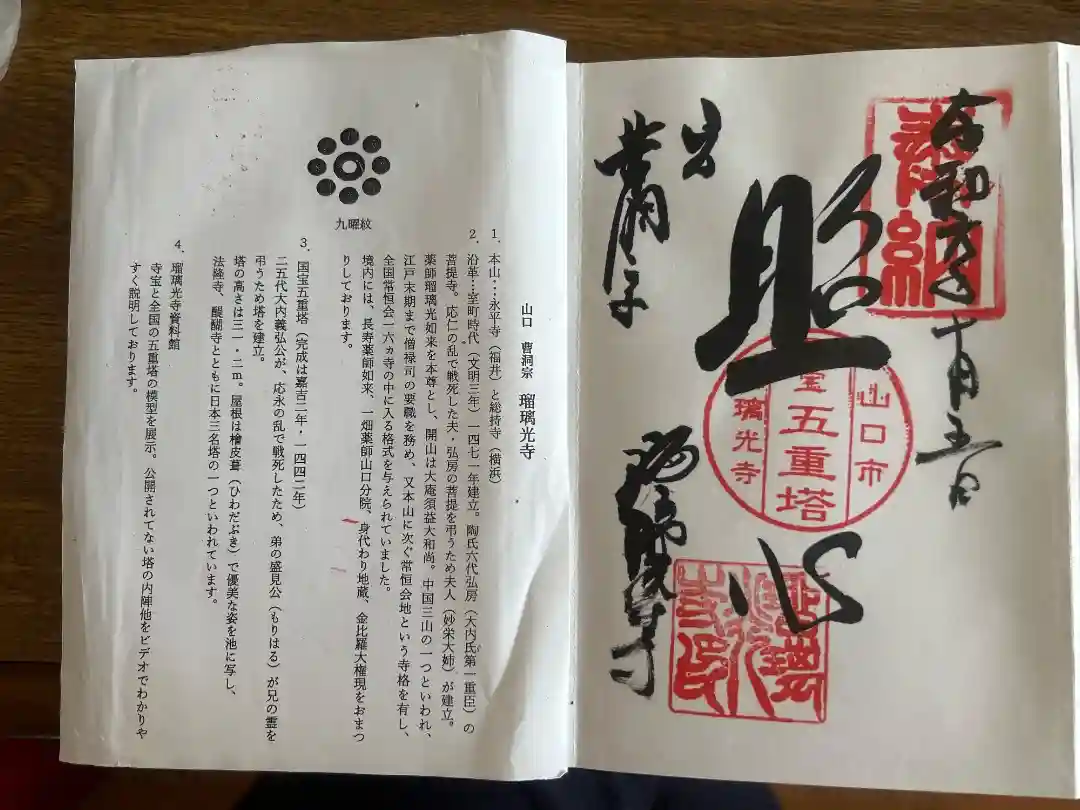 令和六年十月五日
奉納
照心
山口市
宝五重塔
璃光寺
曹洞宗
瑠璃光寺
九曜紋
山口 曹洞宗 瑠璃光寺
1．本山…永平寺（福井）と総持寺（横浜）
2．沿革…室町時代（文明三年）一四七一年建立。陶氏六代弘房（大内氏第一重臣）の
菩提寺。応仁の乱で戦死した夫・弘房の菩提を弔うため夫人（妙栄大姉）が建立。
薬師瑠璃光如来を本尊とし、開山は大庵須益大和尚。中国三山の一つといわれ、
江戸末期まで僧禄司の要職を務め、又本山に次ぐ常恒会地という寺格を有し、
全国常恒会一六ヵ寺の中に入る格式を与えられていました。
境内には、長寿薬師如来、一畑薬師山口分院、身代わり地蔵、金比羅大権現をおまつ
りしております。
3．国宝五重塔（完成は嘉吉二年・一四四二年）
二五代大内義弘公が、応永の乱で戦死したため、弟の盛見公（もりはる）が兄の霊を
弔うため塔を建立。
塔の高さは三一・二m。屋根は檜皮葺（ひわだぶき）で優美な姿を池に写し、
法隆寺、醍醐寺とともに日本三名塔の一つといわれています。
4．瑠璃光寺資料館
寺宝と全国の五重塔の模型を展示。公開されてない塔の内陣他をビデオでわかりや
すく説明しております。